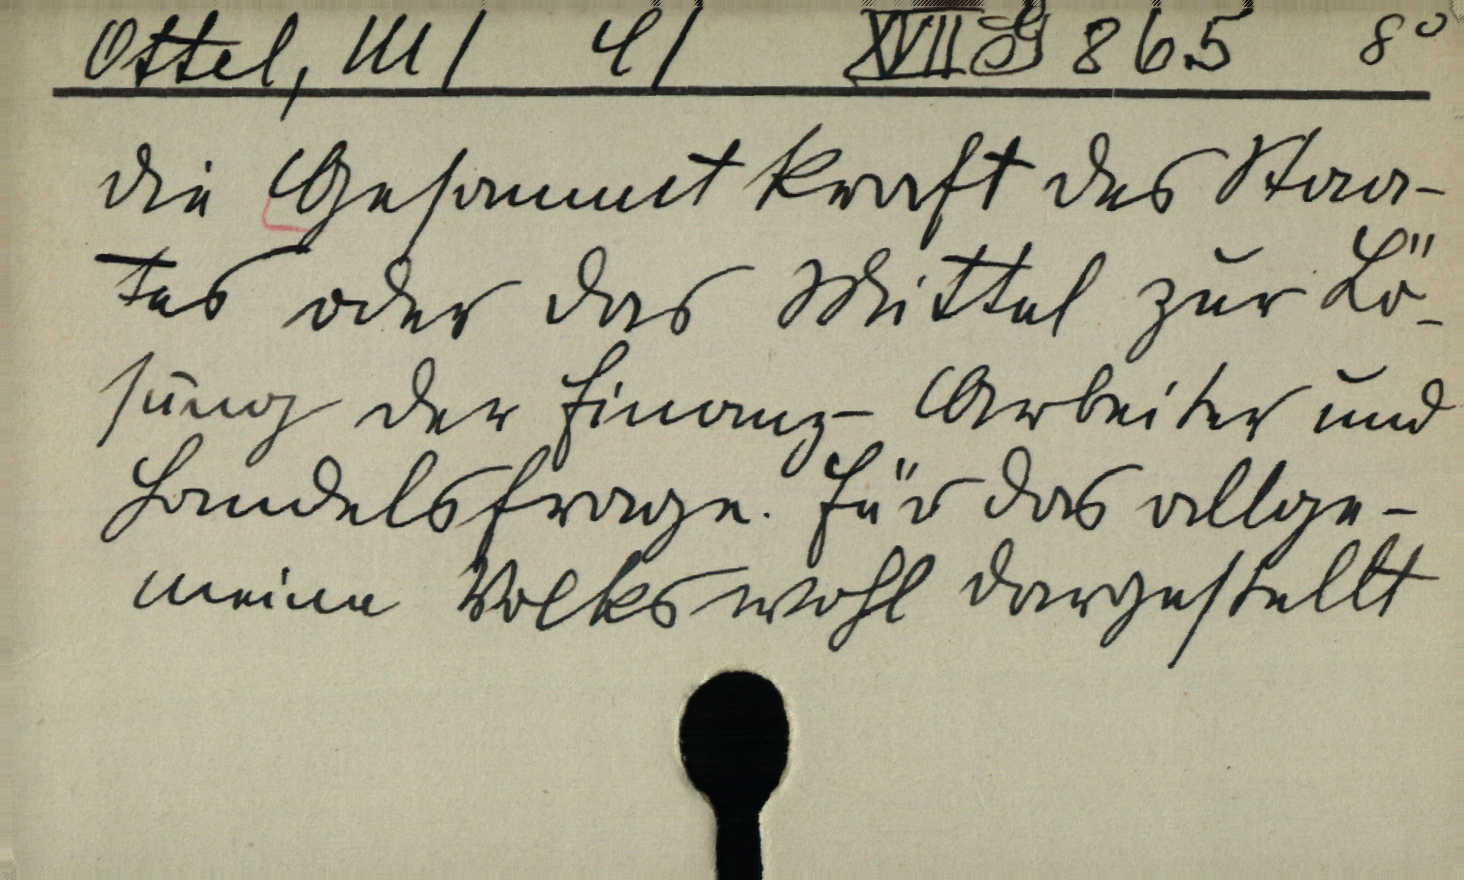 Ottel, M/ 4/ XVII G 865 8°
Die Gesammt Kraft des Staa-
tes oder das Mittel zur Lö-
sung der Finanz- Arbeiter und
Handelsfrage. Für das allge-
meine Volkswohl dargestellt